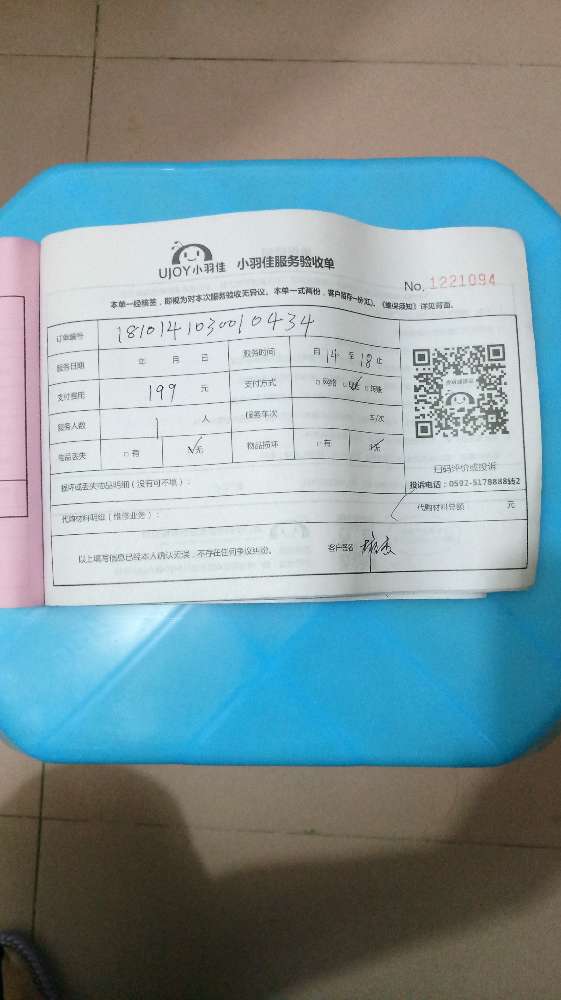 UJOY小羽佳 小羽佳服务验收单
No. 1221094
本单一经核签，即视为对本次服务验收无异议。本单一式两份，客户留存一份(红)。《维保须知》详见背面。
订单编号 181014103001 0434
服务日期 年 月 日 服务时间 自 14 至 18 止
支付费用 199 元 支付方式 □网络 □
服务人数 1 人 服务车次 车/次
物品丢失 □有 √无 物品损坏 □有 √无
损坏或丢失物品明细（没有可不填）：
扫码评价或投诉
投诉电话：0592-5178888转2
代购材料明细（维修业务）： 代购材料总额 元
以上填写信息已经本人确认无误，不存在任何争议纠纷。 客户签名